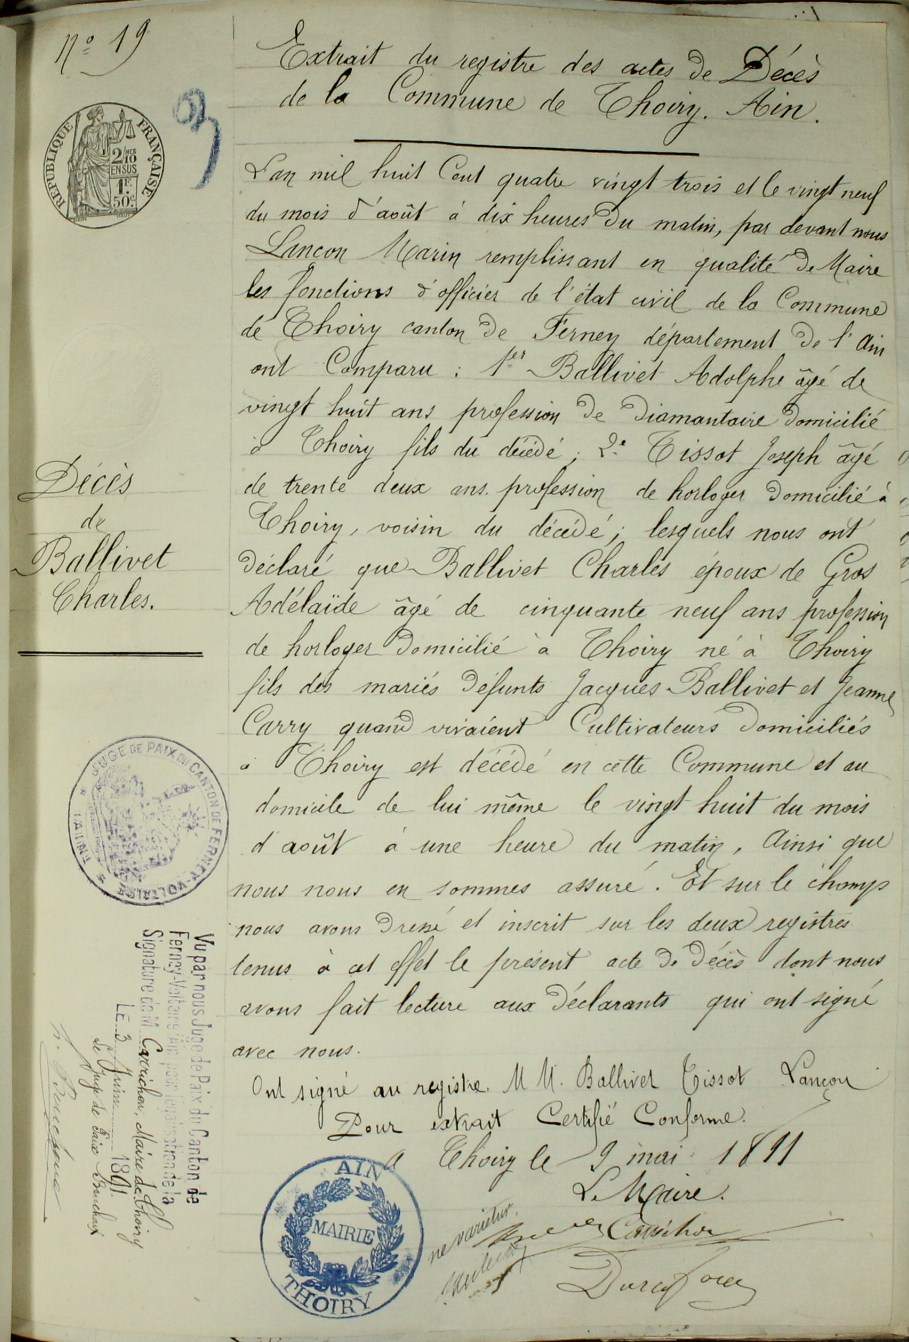 Nº 19
Extrait du registre des actes de Décès
de la Commune de Thoiry. Ain.
RÉPUBLIQUE FRANÇAISE
2/10
EN SUS
1F
50c
L'an mil huit Cent quatre vingt trois et le vingt neuf
du mois d'août à dix heures du matin, par devant nous
Lançon Marin remplissant en qualité de Maire
les fonctions d'officier de l'état civil de la Commune
de Thoiry canton de Ferney département de l'Ain
ont Comparu : 1er Ballivet Adolphe âgé de
vingt huit ans profession de Diamantaire domicilié
à Thoiry fils du décédé ; 2e Tissot Joseph âgé
de trente deux ans. profession de horloger domicilié à
Thoiry, voisin du décédé ; lesquels nous ont
déclaré que Ballivet Charles époux de Gros
Adélaïde âgé de cinquante neuf ans profession
de horloger domicilié à Thoiry né à Thoiry
fils des mariés défunts Jacques Ballivet et Jeanne
Carry quand vivaient Cultivateurs domiciliés
à Thoiry est décédé en cette Commune et au
domicile de lui même le vingt huit du mois
d'août à une heure du matin, Ainsi que
nous nous en sommes assuré. Et sur le champ
nous avons dressé et inscrit sur les deux registres
tenus à cet effet le présent acte de décès dont nous
avons fait lecture aux déclarants qui ont signé
avec nous.
Ont signé au registre. M M. Ballivet Tissot Lançon
Pour extrait Certifié Conforme.
a Thoiry le 9 mai 1891
Le Maire.
ne varietur
Décès
de
Ballivet
Charles.
JUGE DE PAIX DU CANTON DE FERNEY-VOLTAIRE
(AIN)
Vu par nous Juge de Paix du Canton de
Ferney-Voltaire (Ain) pour légalisation de la
Signature de M. Maire de Thoiry
LE 3 Juin 1891
Le Juge de Paix
AIN
MAIRIE
THOIRY